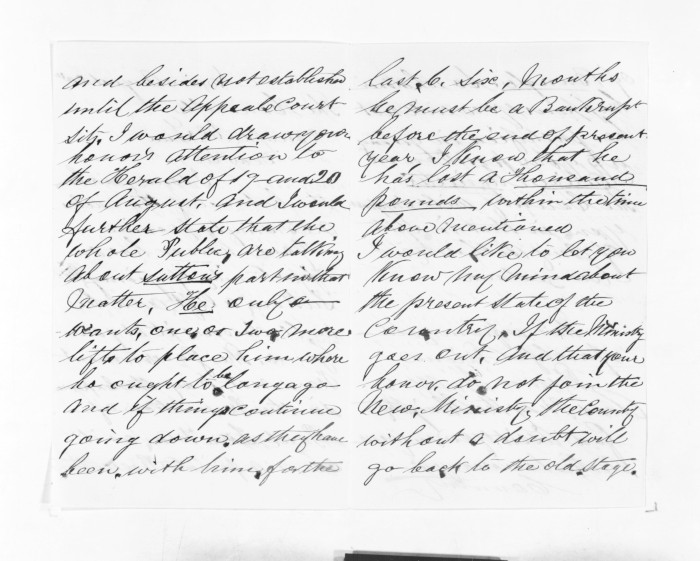 and besides not established
until the Appeale Court
sitz. I would draw your
honor's attention to
the Herald of 17 and 20
of August, and I would
further state that the
whole Public, are talking
about Sutton's part in that
Matter, He only
wants, one or Two more
lifts to place him where
he ought to be long ago
and if things continue
going down as they have
been with him for the
last 6. Six, Months
he must be a Bankrupt
before the end of present
year I know that he
has lost a Thousand
pounds within the time
above mentioned
I would like to let you
know my mind about
the present state of the
Country. If the Ministry
goes out, and that your
honor. do not join the
New Ministry, the County
without a doubt will
go back to the old stage.